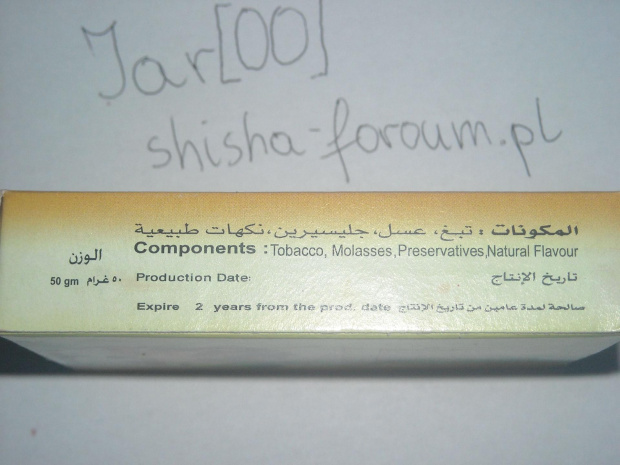 Jar[OO]
shisha-foroum.pl
المكونات : تبغ، عسل، جليسيرين، نكهات طبيعية
Components : Tobacco, Molasses, Preservatives, Natural Flavour
الوزن
50 gm ٥٠ غرام
Production Date: تاريخ الإنتاج
Expire 2 years from the prod. date صالحة لمدة عامين من تاريخ الإنتاج